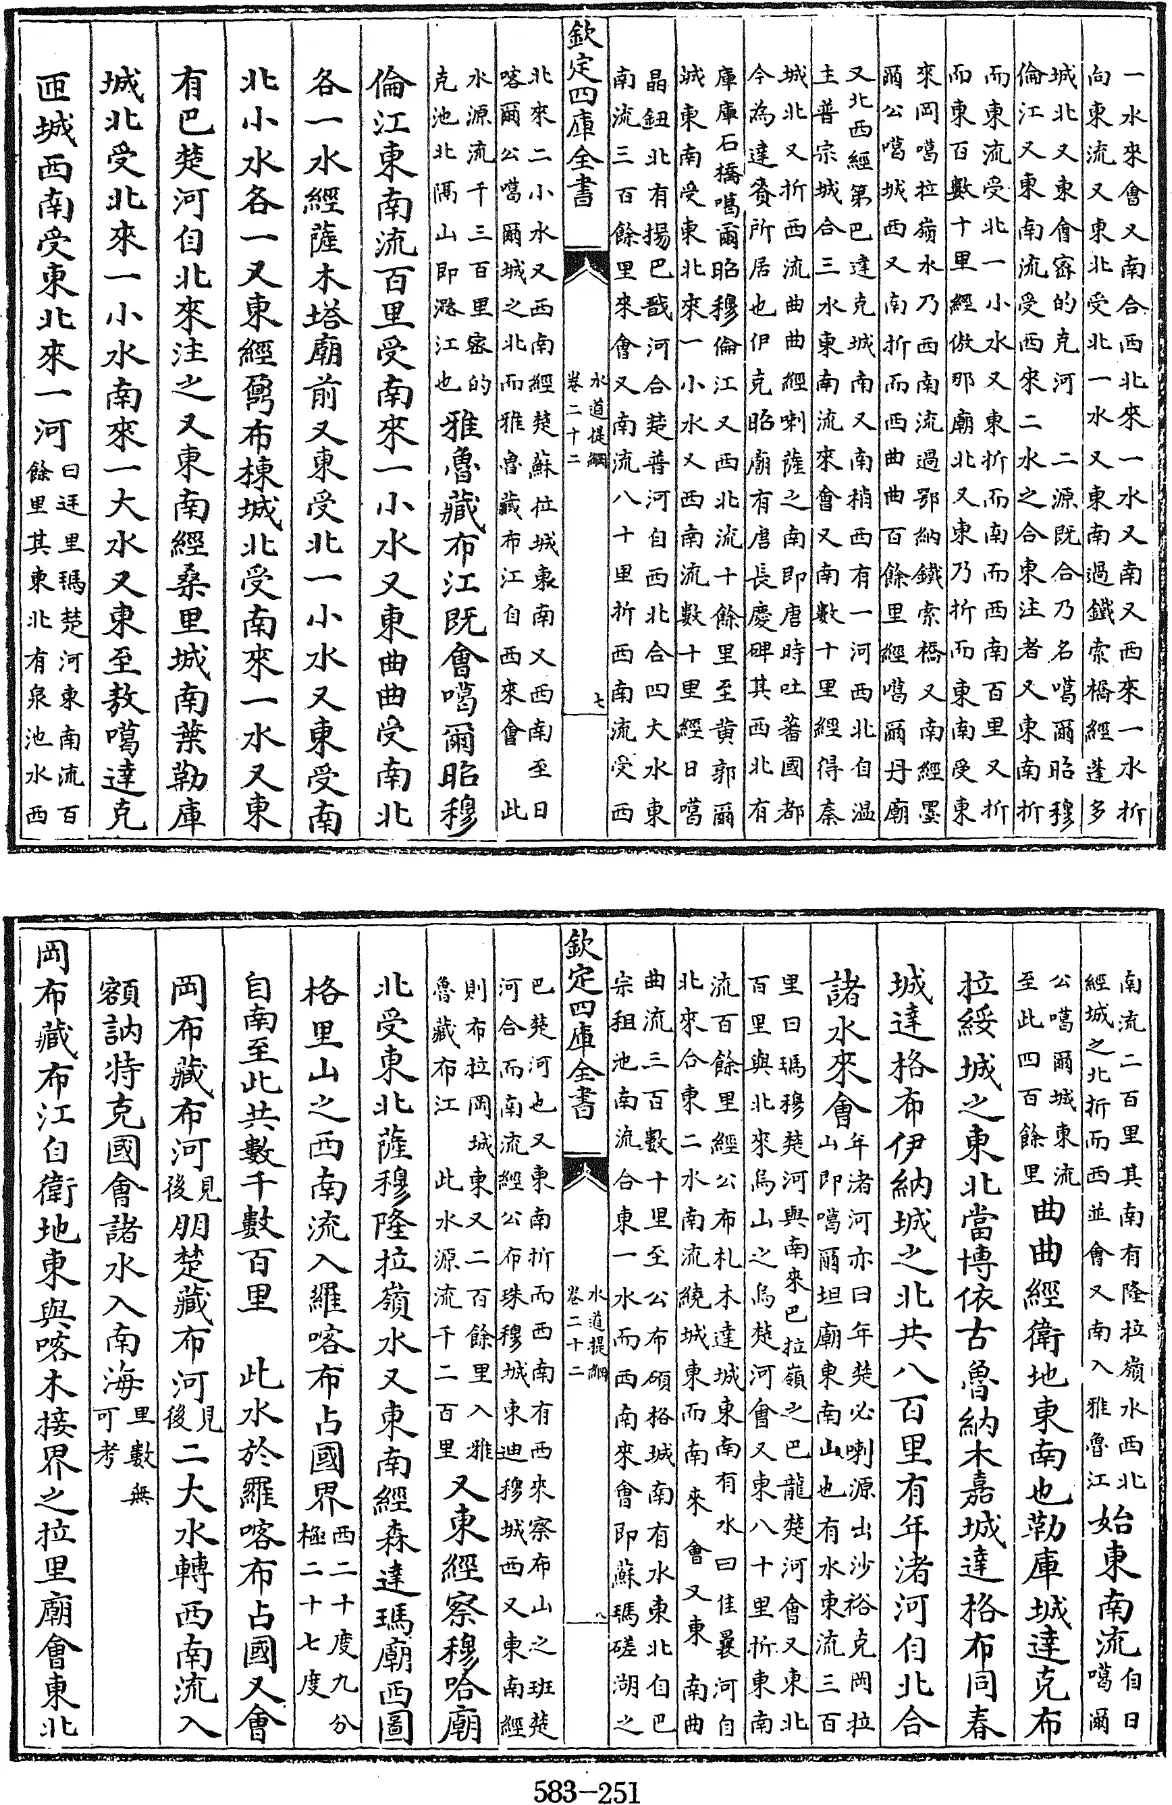 一水來會又南合西北來一水又南又西來一水折
向東流又東北受北一水又東南過鐵索橋經蓬多
城北又東會宻的克河　二源既合乃名噶爾昭穆
倫江又東南流受西來二水之合東注者又東南折
而東流受北一小水又東折而南而西南百里又折
而東百數十里經倣那廟北又東乃折而東南受東
來岡噶拉嶺水乃西南流過鄂納鐵索橋又南經墨
爾公噶城西又南折而西曲曲百餘里經噶爾丹廟
又北西經第巴達克城南又南稍西有一河西北自温
主普宗城合三水東南流來會又南數十里經得秦
城北又折西流曲曲經喇薩之南即唐時吐蕃國都
今為達賚所居也伊克昭廟有唐長慶碑其西北有
庫庫石橋噶爾昭穆倫江又西北流十餘里至黄郭爾
城東南受東北來一小水又西南流數十里經日噶
晶鈕北有揚巴戬河合楚普河自西北合四大水東
南流三百餘里來會又南流八十里折西南流受西
欽定四庫全書
水道提綱
卷二十二
七
北來二小水又西南經楚蘇拉城東南又西南至日
喀爾公噶爾城之北而雅魯藏布江自西來會　此
水源流千三百里宻的
克池北隔山即潞江也
雅魯藏布江既會噶爾昭穆
倫江東南流百里受南來一小水又東曲曲受南北
各一水經薩木塔廟前又東受北一小水又東受南
北小水各一又東經鄂布棟城北受南來一水又東
有巴楚河自北來注之又東南經桑里城南葉勒庫
城北受北來一小水南來一大水又東至敎噶達克
匝城西南受東北來一河
曰迓里瑪楚河東南流百
餘里其東北有泉池水西
南流二百里其南有隆拉嶺水西北
經城之北折而西並會又南入雅魯江
始東南流
自日
噶爾
公噶爾城東流
至此四百餘里
曲曲經衛地東南也勒庫城達克布
拉綏城之東北當博依古魯納木嘉城達格布同春
城達格布伊納城之北共八百里有年渚河自北合
諸水來會
年渚河亦曰年楚必喇源出沙裕克岡拉
山即噶爾坦廟東南山也有水東流三百
里曰瑪穆楚河與南來巴拉嶺之巴龍楚河會又東北
百里與北來烏山之烏楚河會又東八十里折東南
流百餘里經公布札木達城東南有水曰佳曩河自
北來合東二水南流繞城東而南來會又東南曲
曲流三百數十里至公布碩格城南有水東北自巴
宗租池南流合東一水而西南來會即蘇瑪磋湖之
欽定四庫全書
水道提綱
卷二十二
八
巴楚河也又東南折而西南有西來察布山之班楚
河合而南流經公布珠穆城東迪穆城西又東南經
則布拉岡城東又二百餘里入雅
魯藏布江　此水源流千二百里
又東經察穆哈廟
北受東北薩穆隆拉嶺水又東南經森達瑪廟西圖
格里山之西南流入羅喀布占國界
西二十度九分
極二十七度
自南至此共數千數百里　此水於羅喀布占國又會
岡布藏布河
見
後
朋楚藏布河
見
後
二大水轉西南流入
額訥特克國會諸水入南海
里數無
可考
岡布藏布江自衛地東與喀木接界之拉里廟會東北
583-251